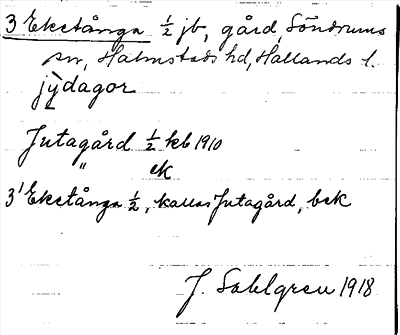 3 Ekstånga ½ jb, gård, Söndrums
sn, Halmstads hd, Hallands l.
jỳdagoʀ
Jutagård ½ kb 1910
" ek
3¹ Ekstånga ½, kallas Jutagård, bek
J. Sahlgren 1918